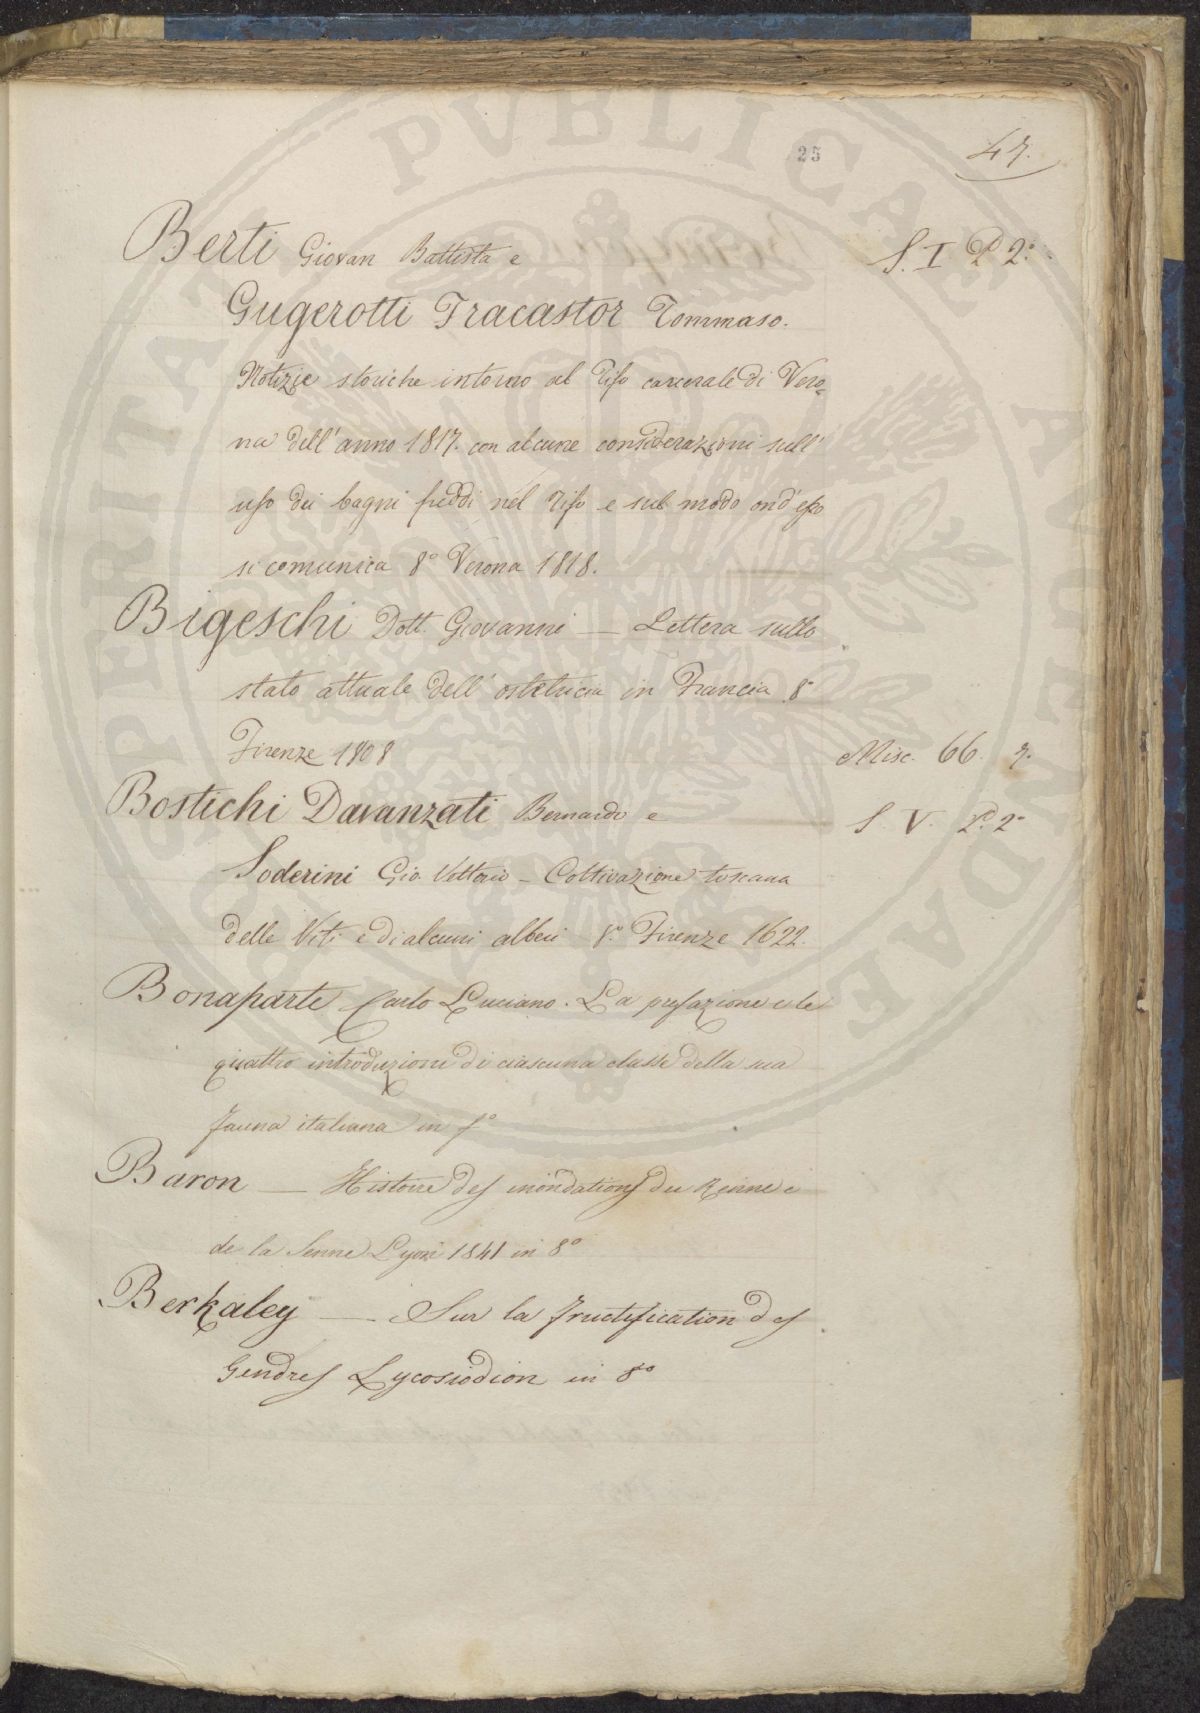 25
47.
Berti Giovan Battista e S. I P. 2.°
Gugerotti Fracastor Tommaso.
Notizie storiche intorno al Tifo carcerale di Vero=
na dell'anno 1817. con alcune considerazioni sull'
uso dei bagni freddi nel Tifo e sul modo ond'esso
si comunica 8° Verona 1818.
Bigeschi Dott. Giovanni — Lettera sullo
stato attuale dell'ostetricia in Francia 8°
Firenze 1808 Misc. 66. 7.
Bostichi Davanzati Bernardo e S. V. P. 2°
Soderini Gio. Vettorio - Coltivazione toscana
delle Viti e di alcuni alberi 8.° Firenze 1622.
Bonaparte Carlo Luciano. La prefazione e le
quattro introduzioni di ciascuna classe della sua
fauna italiana in f°
Baron — Histoire des inondations du Rinne e
de la Senne Lyon 1841 in 8°
Berkaley — Sur la fructification des
Gendres Lycosiodion in 8°
PROSPERITATI PVBLICAE AVGENDAE